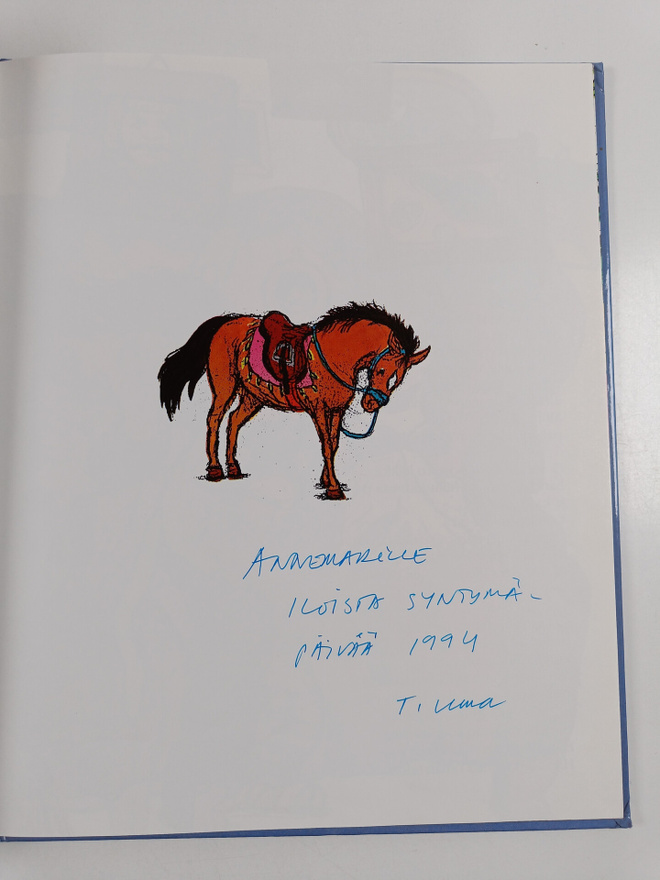 ANNEMARILLE
ILOISTA SYNTYMÄ-
PÄIVÄÄ 1994
T.